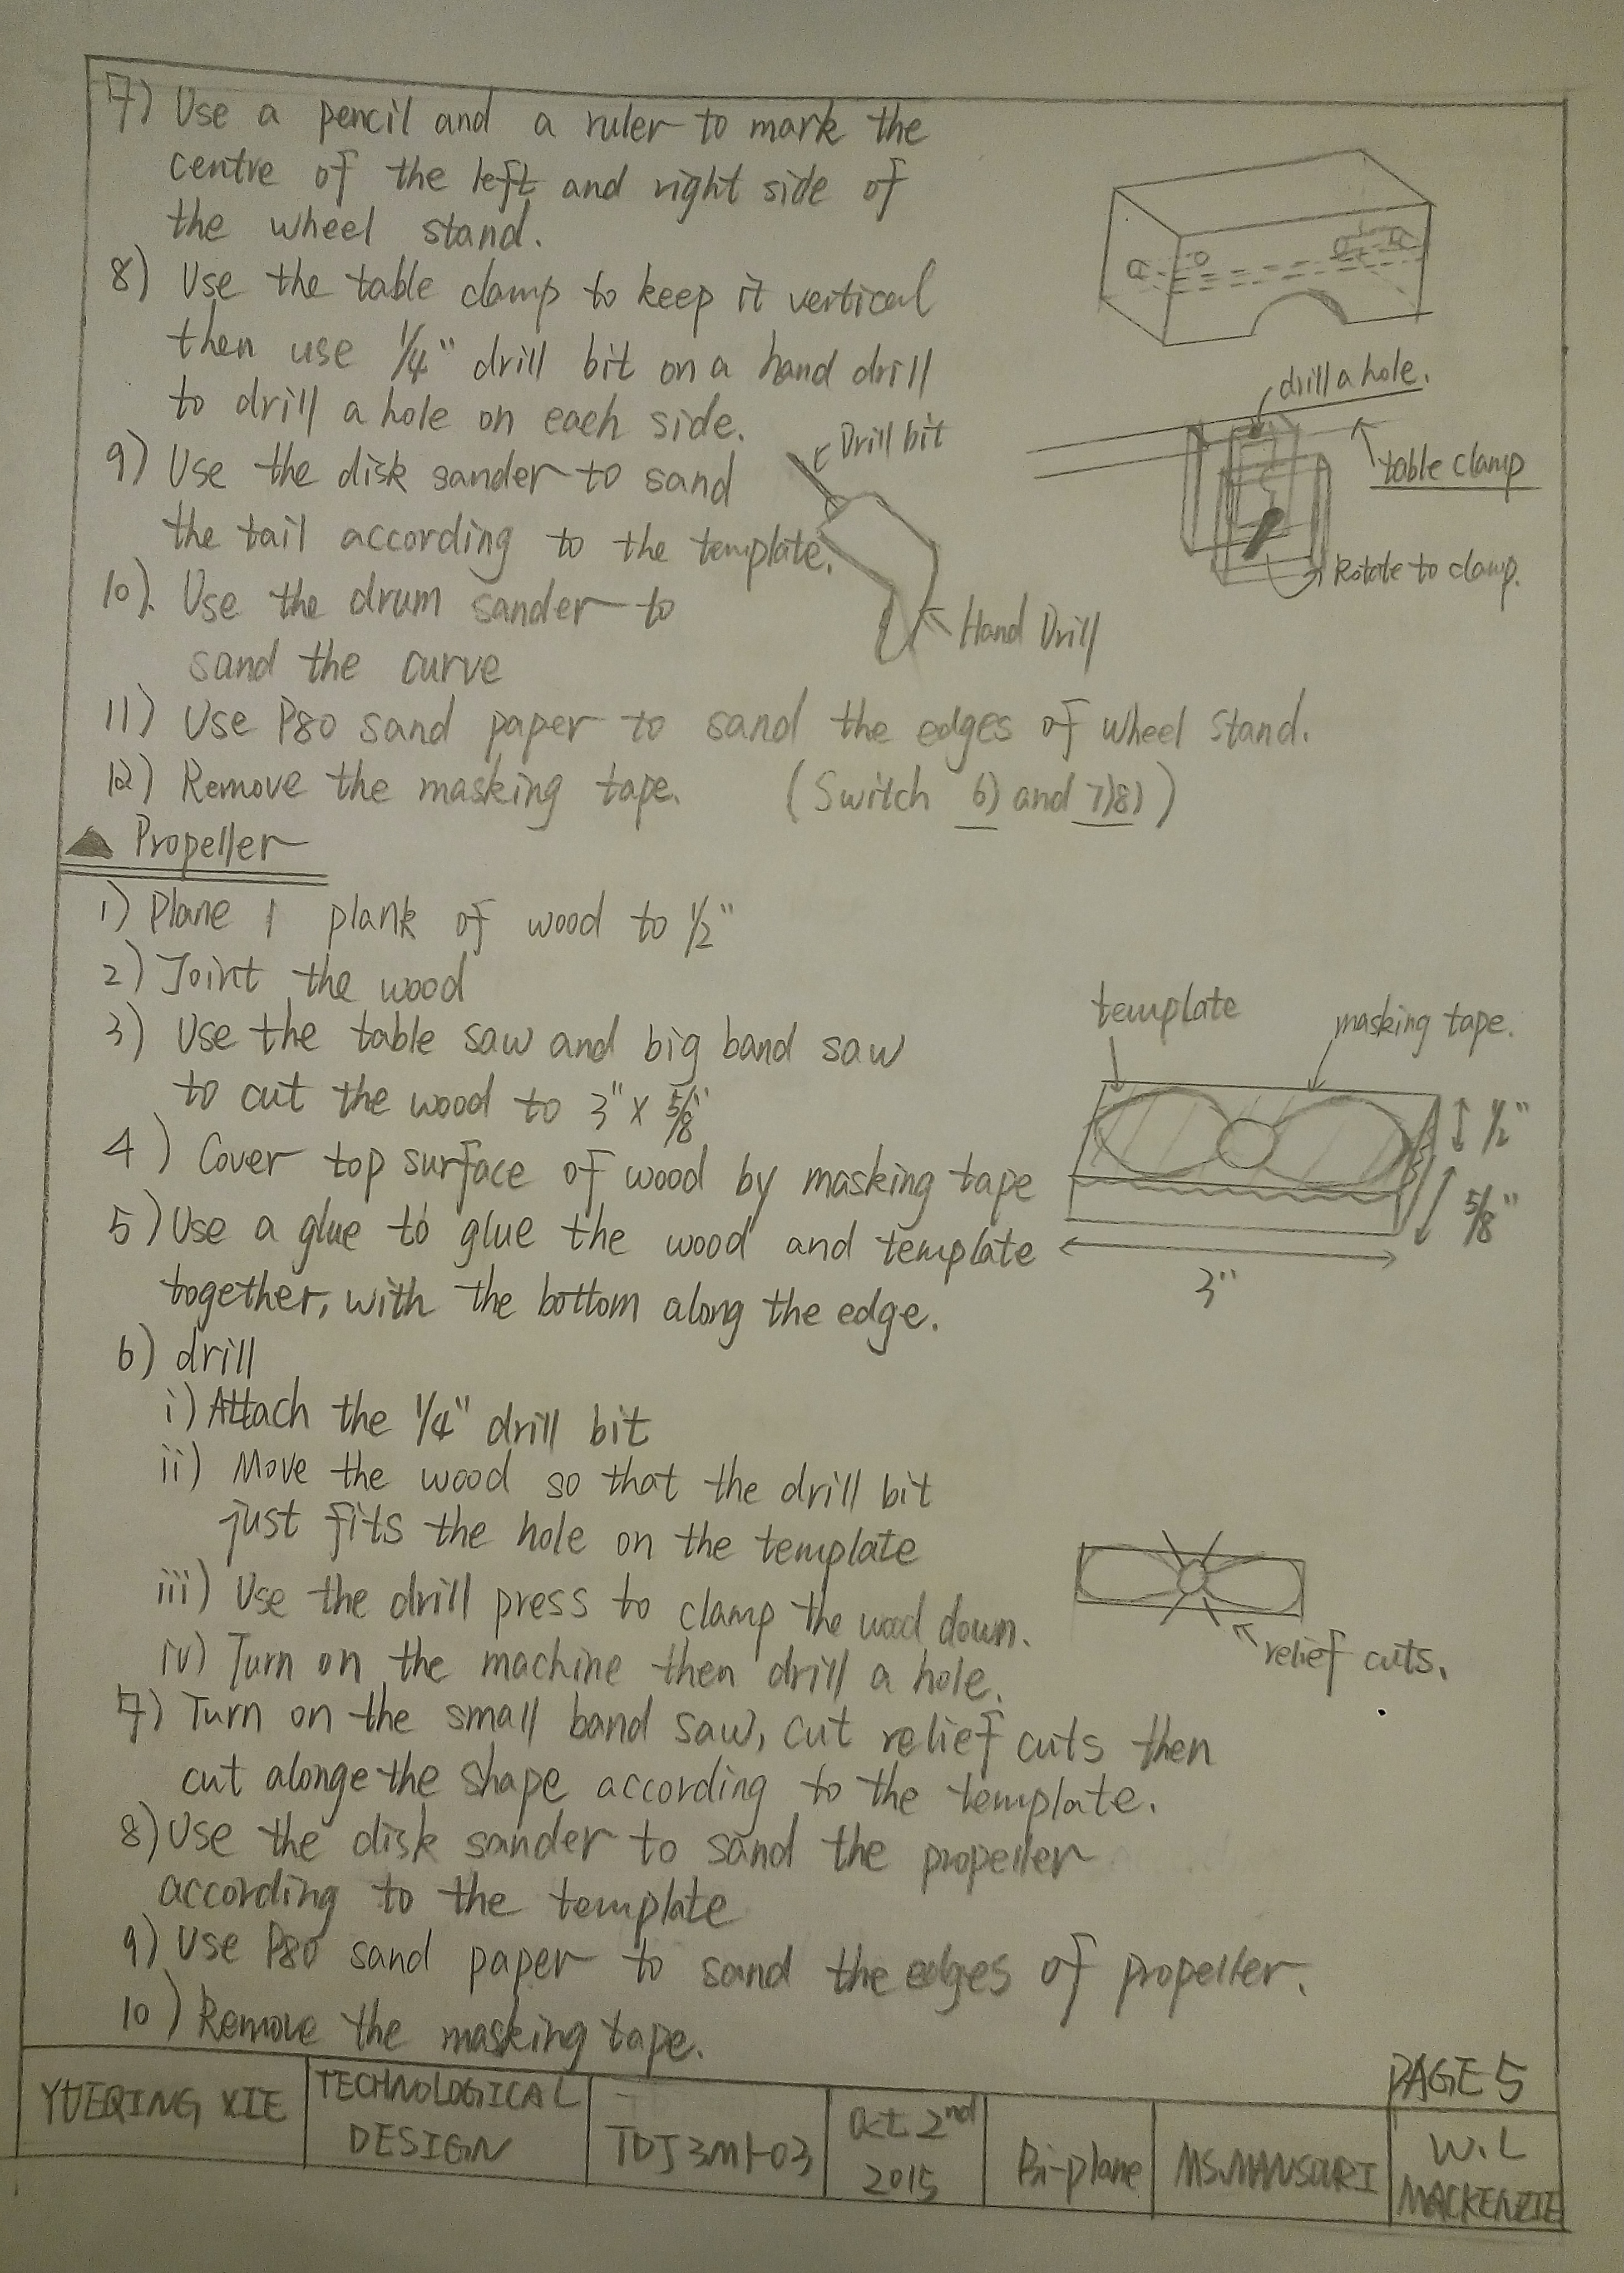 7) Use a pencil and a ruler to mark the
centre of the left and right side of
the wheel stand.
8) Use the table clamp to keep it vertical
then use 1/4" drill bit on a hand drill
to drill a hole on each side.
9) Use the disk sander to sand
the tail according to the template.
10). Use the drum sander to
sand the curve
11) Use P80 sand paper to sand the edges of wheel stand.
12) Remove the masking tape. (Switch 6) and 7)8))
drill a hole.
Drill bit
table clamp
Rotate to clamp.
Hand Drill
▲ Propeller
1) Plane 1 plank of wood to 1/2"
2) Joint the wood
3) Use the table saw and big band saw
to cut the wood to 3" x 5/8"
4) Cover top surface of wood by masking tape
5) Use a glue to glue the wood and template
together, with the bottom along the edge.
template
masking tape.
1/2"
5/8"
3"
6) drill
i) Attach the 1/4" drill bit
ii) Move the wood so that the drill bit
just fits the hole on the template
iii) Use the drill press to clamp the wood down.
iv) Turn on the machine then drill a hole.
relief cuts.
7) Turn on the small band saw, cut relief cuts then
cut alonge the shape according to the template.
8) Use the disk sander to sand the propeller
according to the template
9) Use P80 sand paper to sand the edges of propeller.
10) Remove the masking tape.
PAGE 5
YUEQING XIE
TECHNOLOGICAL
DESIGN
TDJ3M1-03
Oct. 2nd
2015
Bi-plane
MS.MANSOURI
W.L
MACKENZIE